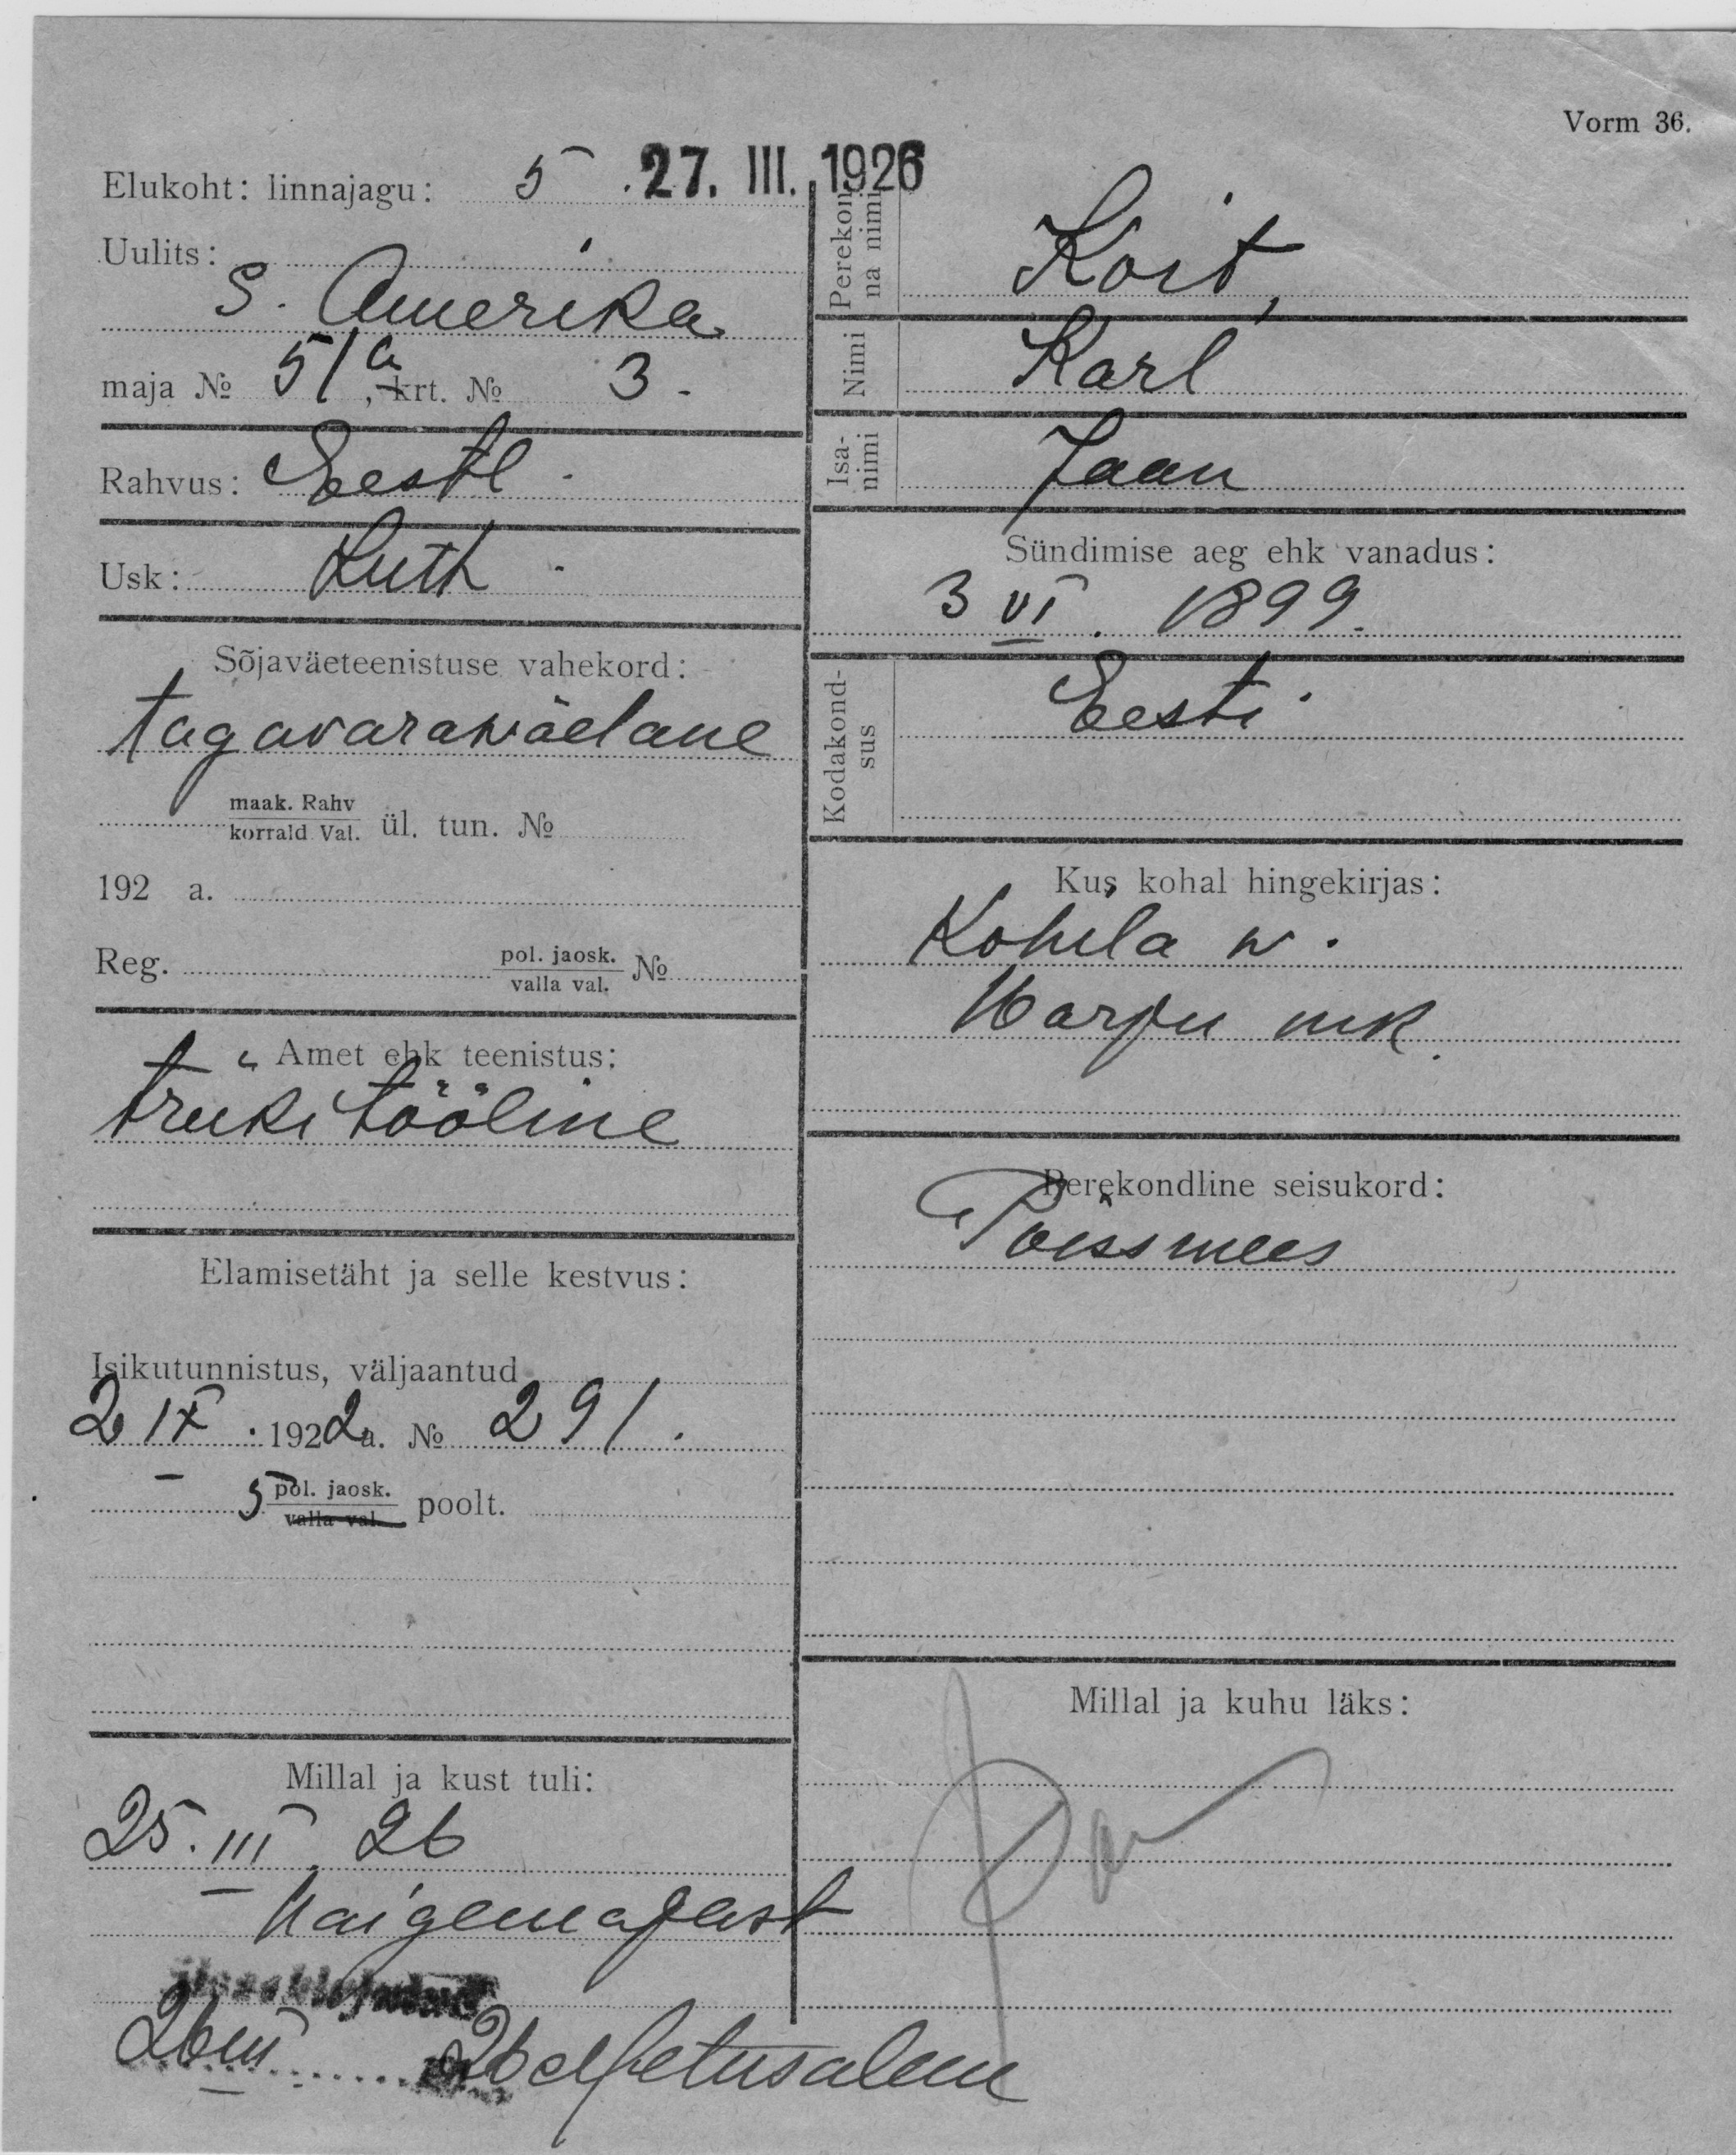 Vorm 36.
27. III. 1926
Elukoht: linnajagu: 5
Uulits:
S. Amerika
maja № 51a, krt. № 3-
Rahvus: Eestl.
Usk: Luth.
Sõjaväeteenistuse vahekord:
tagavarawäelane
maak. Rahv
korrald Val. ül. tun. №
192 a.
Reg. pol. jaosk.
valla val. №
Amet ehk teenistus:
trükitööline
Elamisetäht ja selle kestvus:
Isikutunnistus, väljaantud
2 IX. 1922a. № 291.
5 pol. jaosk.
valla val. poolt.
Millal ja kust tuli:
25. III. 26
Haigemajast
26 III 26
Perekon-
na nimi Koit,
Nimi Karl
Isa-
nimi Jaan
Sündimise aeg ehk vanadus:
3 VI. 1899.
Kodakond-
sus Eesti
Kus kohal hingekirjas:
Kohila w.
Harju mk.
Perekondline seisukord:
Poissmees
Millal ja kuhu läks: